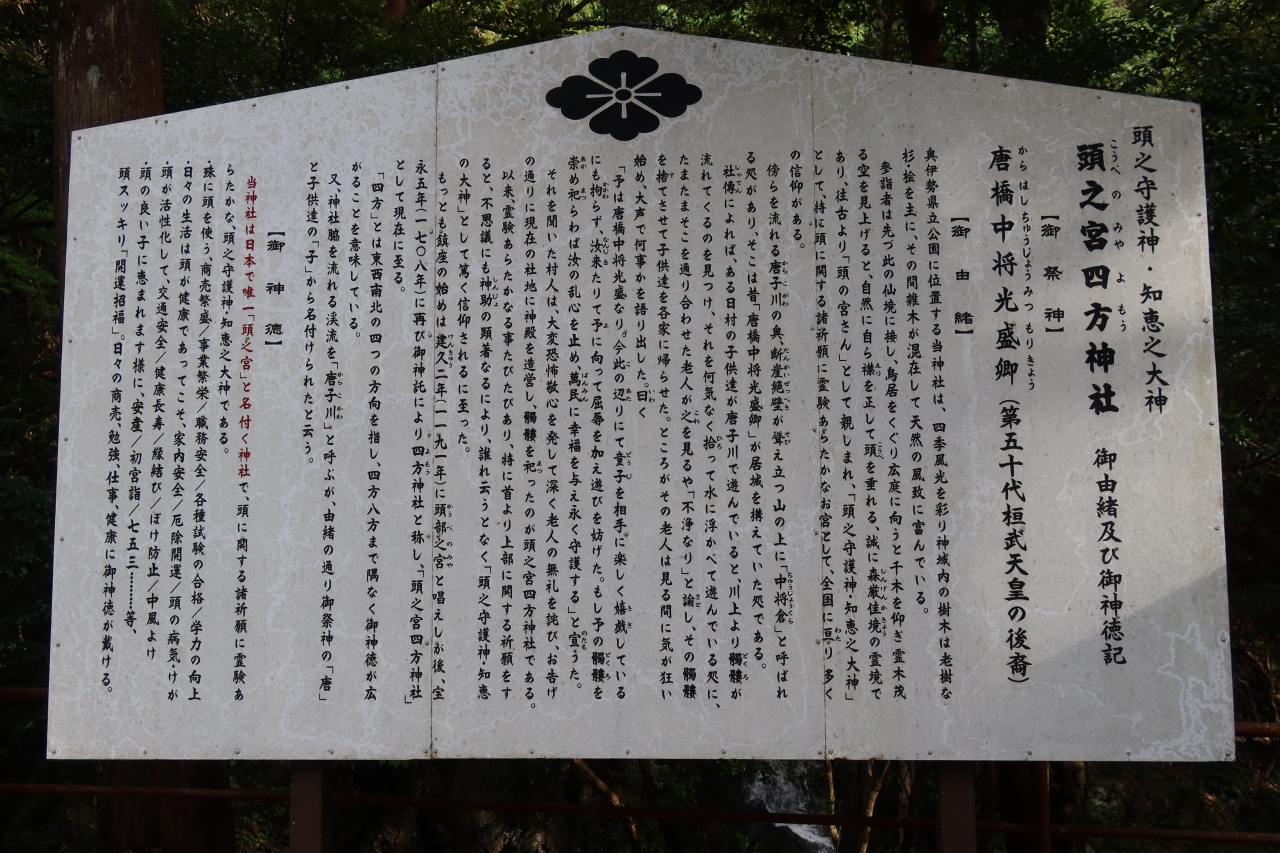 頭之守護神・知恵之大神
頭之宮四方神社 御由緒及び御神徳記
こうべ の みや よ もう
【御祭神】
唐橋中将光盛卿(第五十代桓武天皇の後裔)
からはしちゅうじょうみつもりきょう
【御由緒】
奥伊勢県立公園に位置する当神社は、四季風光を彩り神域内の樹木は老樹な
杉・桧を主に、その間雑木が混在して天然の風致に富んでいる。
参詣者は先づ此の仙境に接し、鳥居をくぐり広庭に向うと千木を仰ぎ霊木茂
る空を見上げると、自然に自ら襟を正して頭を垂れる、誠に森厳佳境の霊境で
あり、往古より「頭の宮さん」として親しまれ、「頭之守護神・知恵之大神」
として、特に頭に関する諸祈願に霊験あらたかなお宮として、全国に亘り多く
の信仰がある。
傍らを流れる唐子川の奥、断崖絶壁が聳え立つ山の上に「中将倉」と呼ばれ
る処があり、そこは昔「唐橋中将光盛卿」が居城を構えていた処である。
社傳によれば、ある日村の子供達が唐子川で遊んでいると、川上より髑髏が
流れてくるのを見つけ、それを何気なく拾って水に浮かべて遊んでいる処に、
たまたまそこを通り合わせた老人が之を見るや「不浄なり」と諭し、その髑髏
を捨てさせて子供達を各家に帰らせた。ところがその老人は見る間に気が狂い
始め、大声で何事かを語り出した。曰く
「予は唐橋中将光盛なり。今此の辺りにて童子を相手に楽しく嬉戯している
にも拘らず、汝来たりて予に向って屈辱を加え遊びを妨げた。もし予の髑髏を
崇め祀らわば汝の乱心を止め萬民に幸福を与え永く守護する」と宣うた。
それを聞いた村人は、大変恐怖敬心を発して深く老人の無礼を詫び、お告げ
の通りに現在の社地に神殿を造営し、髑髏を祀ったのが頭之宮四方神社である。
以来、霊験あらたかなる事たびたびあり、特に首より上部に関する祈願をす
ると、不思議にも神助の顕著なるにより、誰れ云うとなく「頭之守護神・知恵
の大神」として篤く信仰されるに至った。
もっとも鎮座の始めは建久二年(一一九一年)に頭部之宮と唱えしが後、宝
永五年(一七〇八年)に再び御神託により四方神社と称し、「頭之宮四方神社」
として現在に至る。
「四方」とは東西南北の四つの方向を指し、四方八方まで隅なく御神徳が広
がることを意味している。
又、神社脇を流れる渓流を「唐子川」と呼ぶが、由緒の通り御祭神の「唐」
と子供達の「子」から名付けられたと云う。
【御神徳】
当神社は日本で唯一「頭之宮」と名付く神社で、頭に関する諸祈願に霊験あ
らたかな、頭之守護神・知恵之大神である。
・殊に頭を使う、商売繁盛/事業繁栄/職務安全/各種試験の合格/学力の向上
・日々の生活は頭が健康であってこそ、家内安全/厄除開運/頭の病気・けが
・頭が活性化して、交通安全/健康長寿/縁結び/ぼけ防止/中風よけ
・頭の良い子に恵まれます様に、安産/初宮詣/七五三………等、
頭スッキリ「開運招福」。日々の商売、勉強、仕事、健康に御神徳が戴ける。